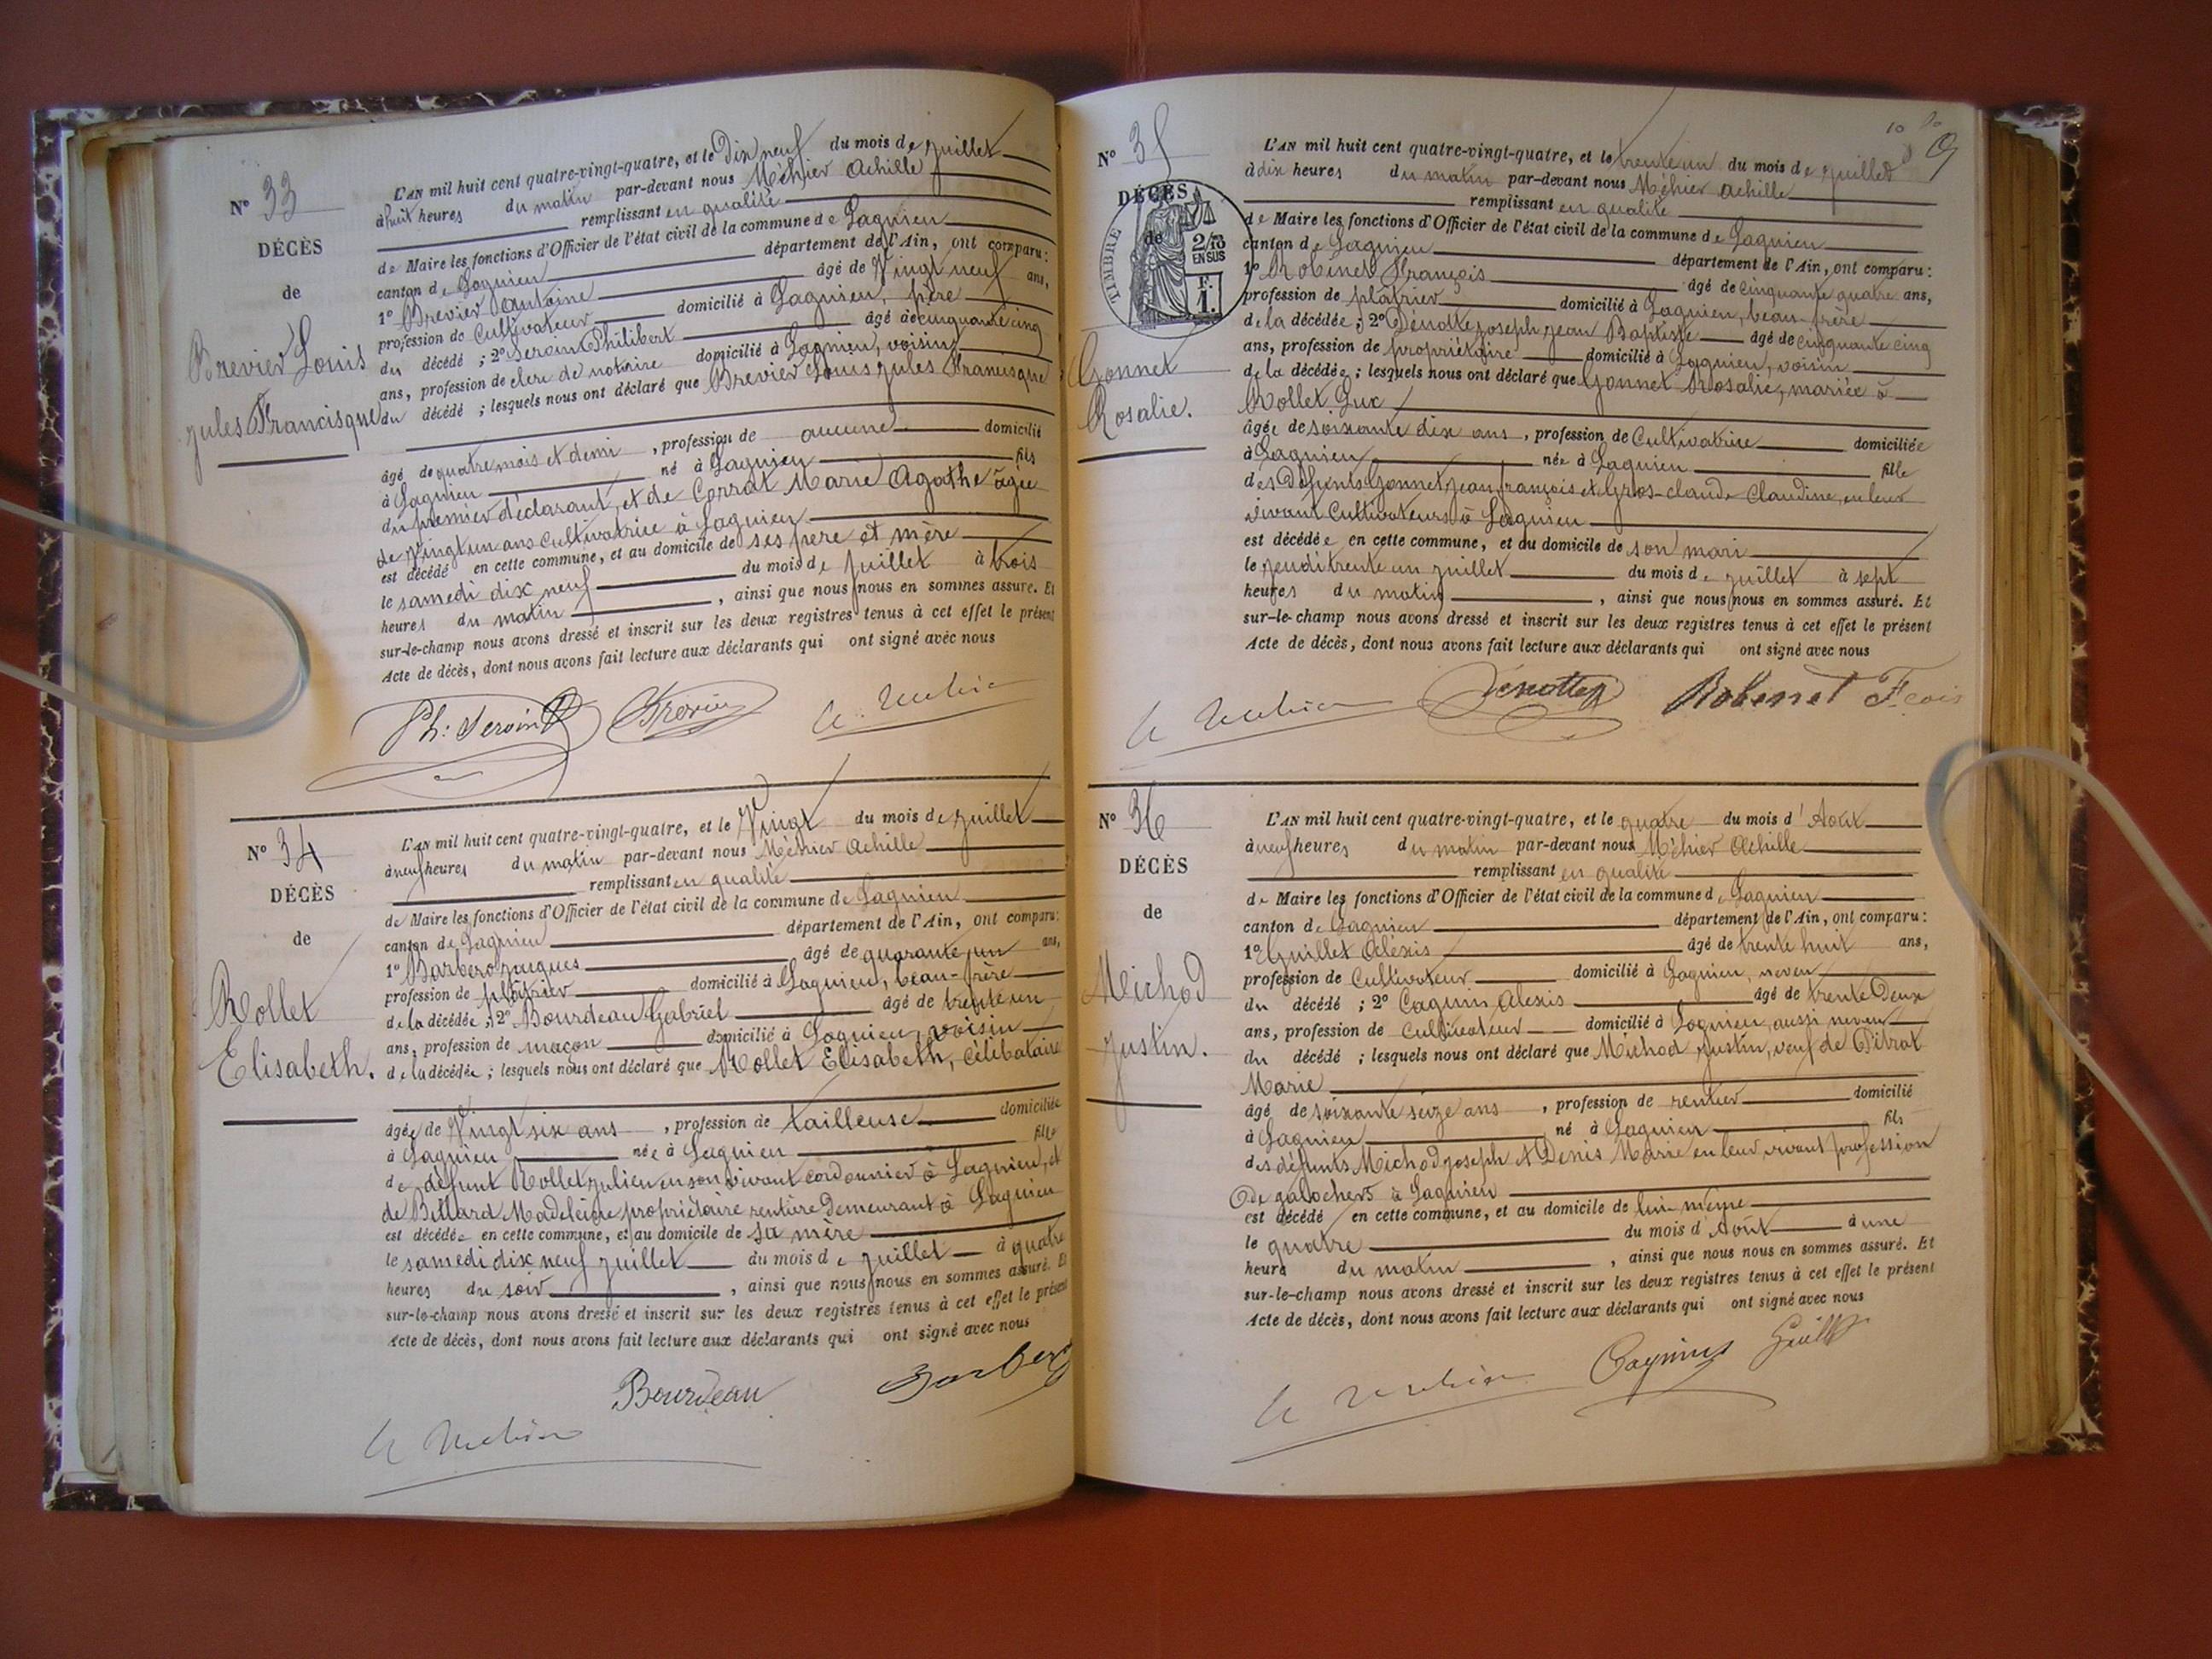 N° 33
DÉCÈS
de
Brevier Louis
jules Francisque
L'AN mil huit cent quatre-vingt-quatre, et le Dix neuf du mois de juillet
à huit heures du matin par-devant nous Méhier Achille
remplissant en qualité
de Maire les fonctions d'Officier de l'état civil de la commune de Lagnieu
canton de Lagnieu département de l'Ain, ont comparu :
1° Brevier Antoine âgé de Vingt neuf ans,
profession de Cultivateur domicilié à Lagnieu, père
du décédé ; 2° Seroin Philibert âgé de cinquante cinq
ans, profession de clerc de notaire domicilié à Lagnieu, voisin
du décédé ; lesquels nous ont déclaré que Brevier Louis jules Francisque
âgé de quatre mois et demi , profession de aucune domicilié
à Lagnieu né à Lagnieu fils
du premier déclarant, et de Carrat Marie Agathe âgée
de vingt un ans Cultivatrice à Lagnieu
est décédé en cette commune, et au domicile de ses père et mère
le samedi dix neuf du mois de juillet à trois
heures du matin , ainsi que nous nous en sommes assuré. Et
sur-le-champ nous avons dressé et inscrit sur les deux registres tenus à cet effet le présent
Acte de décès, dont nous avons fait lecture aux déclarants qui ont signé avec nous
Ph: Seroin Brevier A. Mehier
N° 34
DÉCÈS
de
Rollet
Elisabeth.
L'AN mil huit cent quatre-vingt-quatre, et le Vingt du mois de juillet
à neuf heures du matin par-devant nous Méhier Achille
remplissant en qualité
de Maire les fonctions d'Officier de l'état civil de la commune de Lagnieu
canton de Lagnieu département de l'Ain, ont comparu :
1° Barbero jacques âgé de quarante un ans,
profession de plâtrier domicilié à Lagnieu, beau-frère
de la décédée ; 2° Bourdeau Gabriel âgé de trente un
ans, profession de maçon domicilié à Lagnieu, voisin
de la décédée ; lesquels nous ont déclaré que Rollet Elisabeth, célibataire
âgée de Vingt six ans , profession de tailleuse domiciliée
à Lagnieu née à Lagnieu fille
de défunt Rollet julien en son vivant cordonnier à Lagnieu, et
de Billard Madeleine propriétaire rentière demeurant à Lagnieu
est décédée en cette commune, et au domicile de sa mère
le samedi dix neuf juillet du mois de juillet à quatre
heures du soir , ainsi que nous nous en sommes assuré. Et
sur-le-champ nous avons dressé et inscrit sur les deux registres tenus à cet effet le présent
Acte de décès, dont nous avons fait lecture aux déclarants qui ont signé avec nous
Bourdeau Barbero
A Mehier
N° 35
DÉCÈS
de
TIMBRE
2/10
EN SUS
F.
1.
Gonnet
Rosalie.
10
9
L'AN mil huit cent quatre-vingt-quatre, et le trente un du mois de juillet
à dix heures du matin par-devant nous Méhier Achille
remplissant en qualité
de Maire les fonctions d'Officier de l'état civil de la commune de Lagnieu
canton de Lagnieu département de l'Ain, ont comparu :
1° Robinet François âgé de cinquante quatre ans,
profession de plâtrier domicilié à Lagnieu, beau-frère
de la décédée ; 2° Dénotte joseph jean Baptiste âgé de cinquante cinq
ans, profession de propriétaire domicilié à Lagnieu, voisin
de la décédée ; lesquels nous ont déclaré que Gonnet Rosalie, mariée à
Rollet Luc
âgée de soixante dix ans , profession de Cultivatrice domiciliée
à Lagnieu née à Lagnieu fille
des Défunts Gonnet jean françois et Gros-claude Claudine, en leur
vivant Cultivateurs à Lagnieu
est décédée en cette commune, et au domicile de son mari
le jeudi trente un juillet du mois de juillet à sept
heures du matin , ainsi que nous nous en sommes assuré. Et
sur-le-champ nous avons dressé et inscrit sur les deux registres tenus à cet effet le présent
Acte de décès, dont nous avons fait lecture aux déclarants qui ont signé avec nous
A Mehier Dénotte Robinet Fcois
N° 36
DÉCÈS
de
Michod
justin.
L'AN mil huit cent quatre-vingt-quatre, et le quatre du mois d'Août
à neuf heures du matin par-devant nous Méhier Achille
remplissant en qualité
de Maire les fonctions d'Officier de l'état civil de la commune de Lagnieu
canton de Lagnieu département de l'Ain, ont comparu :
1° Guillet Alexis âgé de trente huit ans,
profession de Cultivateur domicilié à Lagnieu, neveu
du décédé ; 2° Cagnin Alexis âgé de trente Deux
ans, profession de Cultivateur domicilié à Lagnieu, aussi neveu
du décédé ; lesquels nous ont déclaré que Michod justin, veuf de Pitrat
Marie
âgé de soixante seize ans , profession de rentier domicilié
à Lagnieu né à Lagnieu fils
des défunts Michod joseph et Denis Marie en leur vivant profession
de galochers à Lagnieu
est décédé en cette commune, et au domicile de lui-même
le quatre du mois d'Août à une
heure du matin , ainsi que nous nous en sommes assuré. Et
sur-le-champ nous avons dressé et inscrit sur les deux registres tenus à cet effet le présent
Acte de décès, dont nous avons fait lecture aux déclarants qui ont signé avec nous
A Mehier Cagnin Guillet